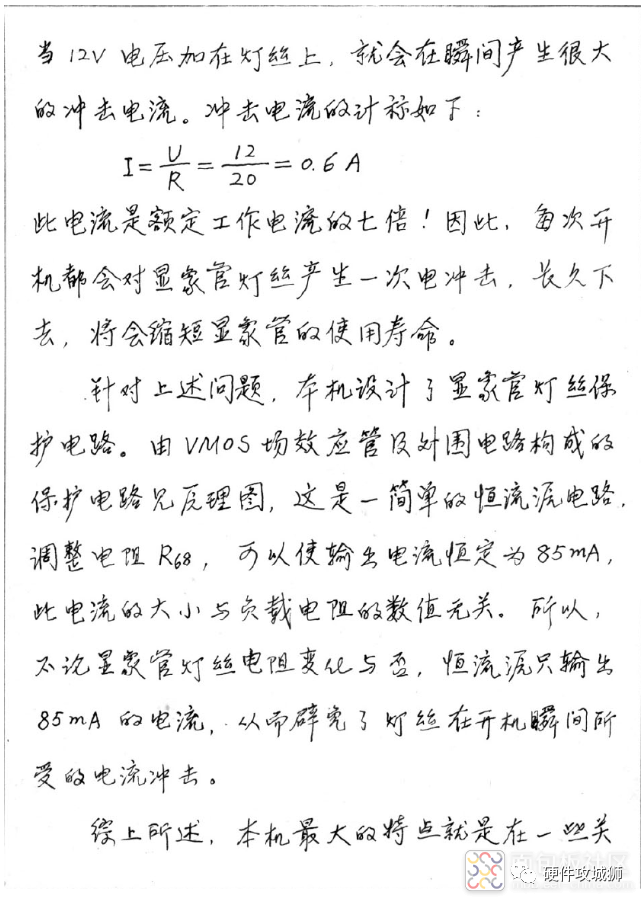 当12V电压加在灯丝上，就会在瞬间产生很大
的冲击电流。冲击电流的计称如下：
I=U/R=12/20=0.6A
此电流是额定工作电流的七倍！因此，每次开
机都会对显象管灯丝产生一次电冲击，长久下
去，将会缩短显象管的使用寿命。
针对上述问题，本机设计了显象管灯丝保
护电路。由VMOS场效应管及外围电路构成的
保护电路见原理图，这是一简单的恒流源电路，
调整电阻R68，可以使输出电流恒定为85mA，
此电流的大小与负载电阻的数值无关。所以，
不论显象管灯丝电阻变化与否，恒流源只输出
85mA的电流，从而避免了灯丝在开机瞬间所
受的电流冲击。
综上所述，本机最大的特点就是在一些关
面包板社区
硬件攻城狮